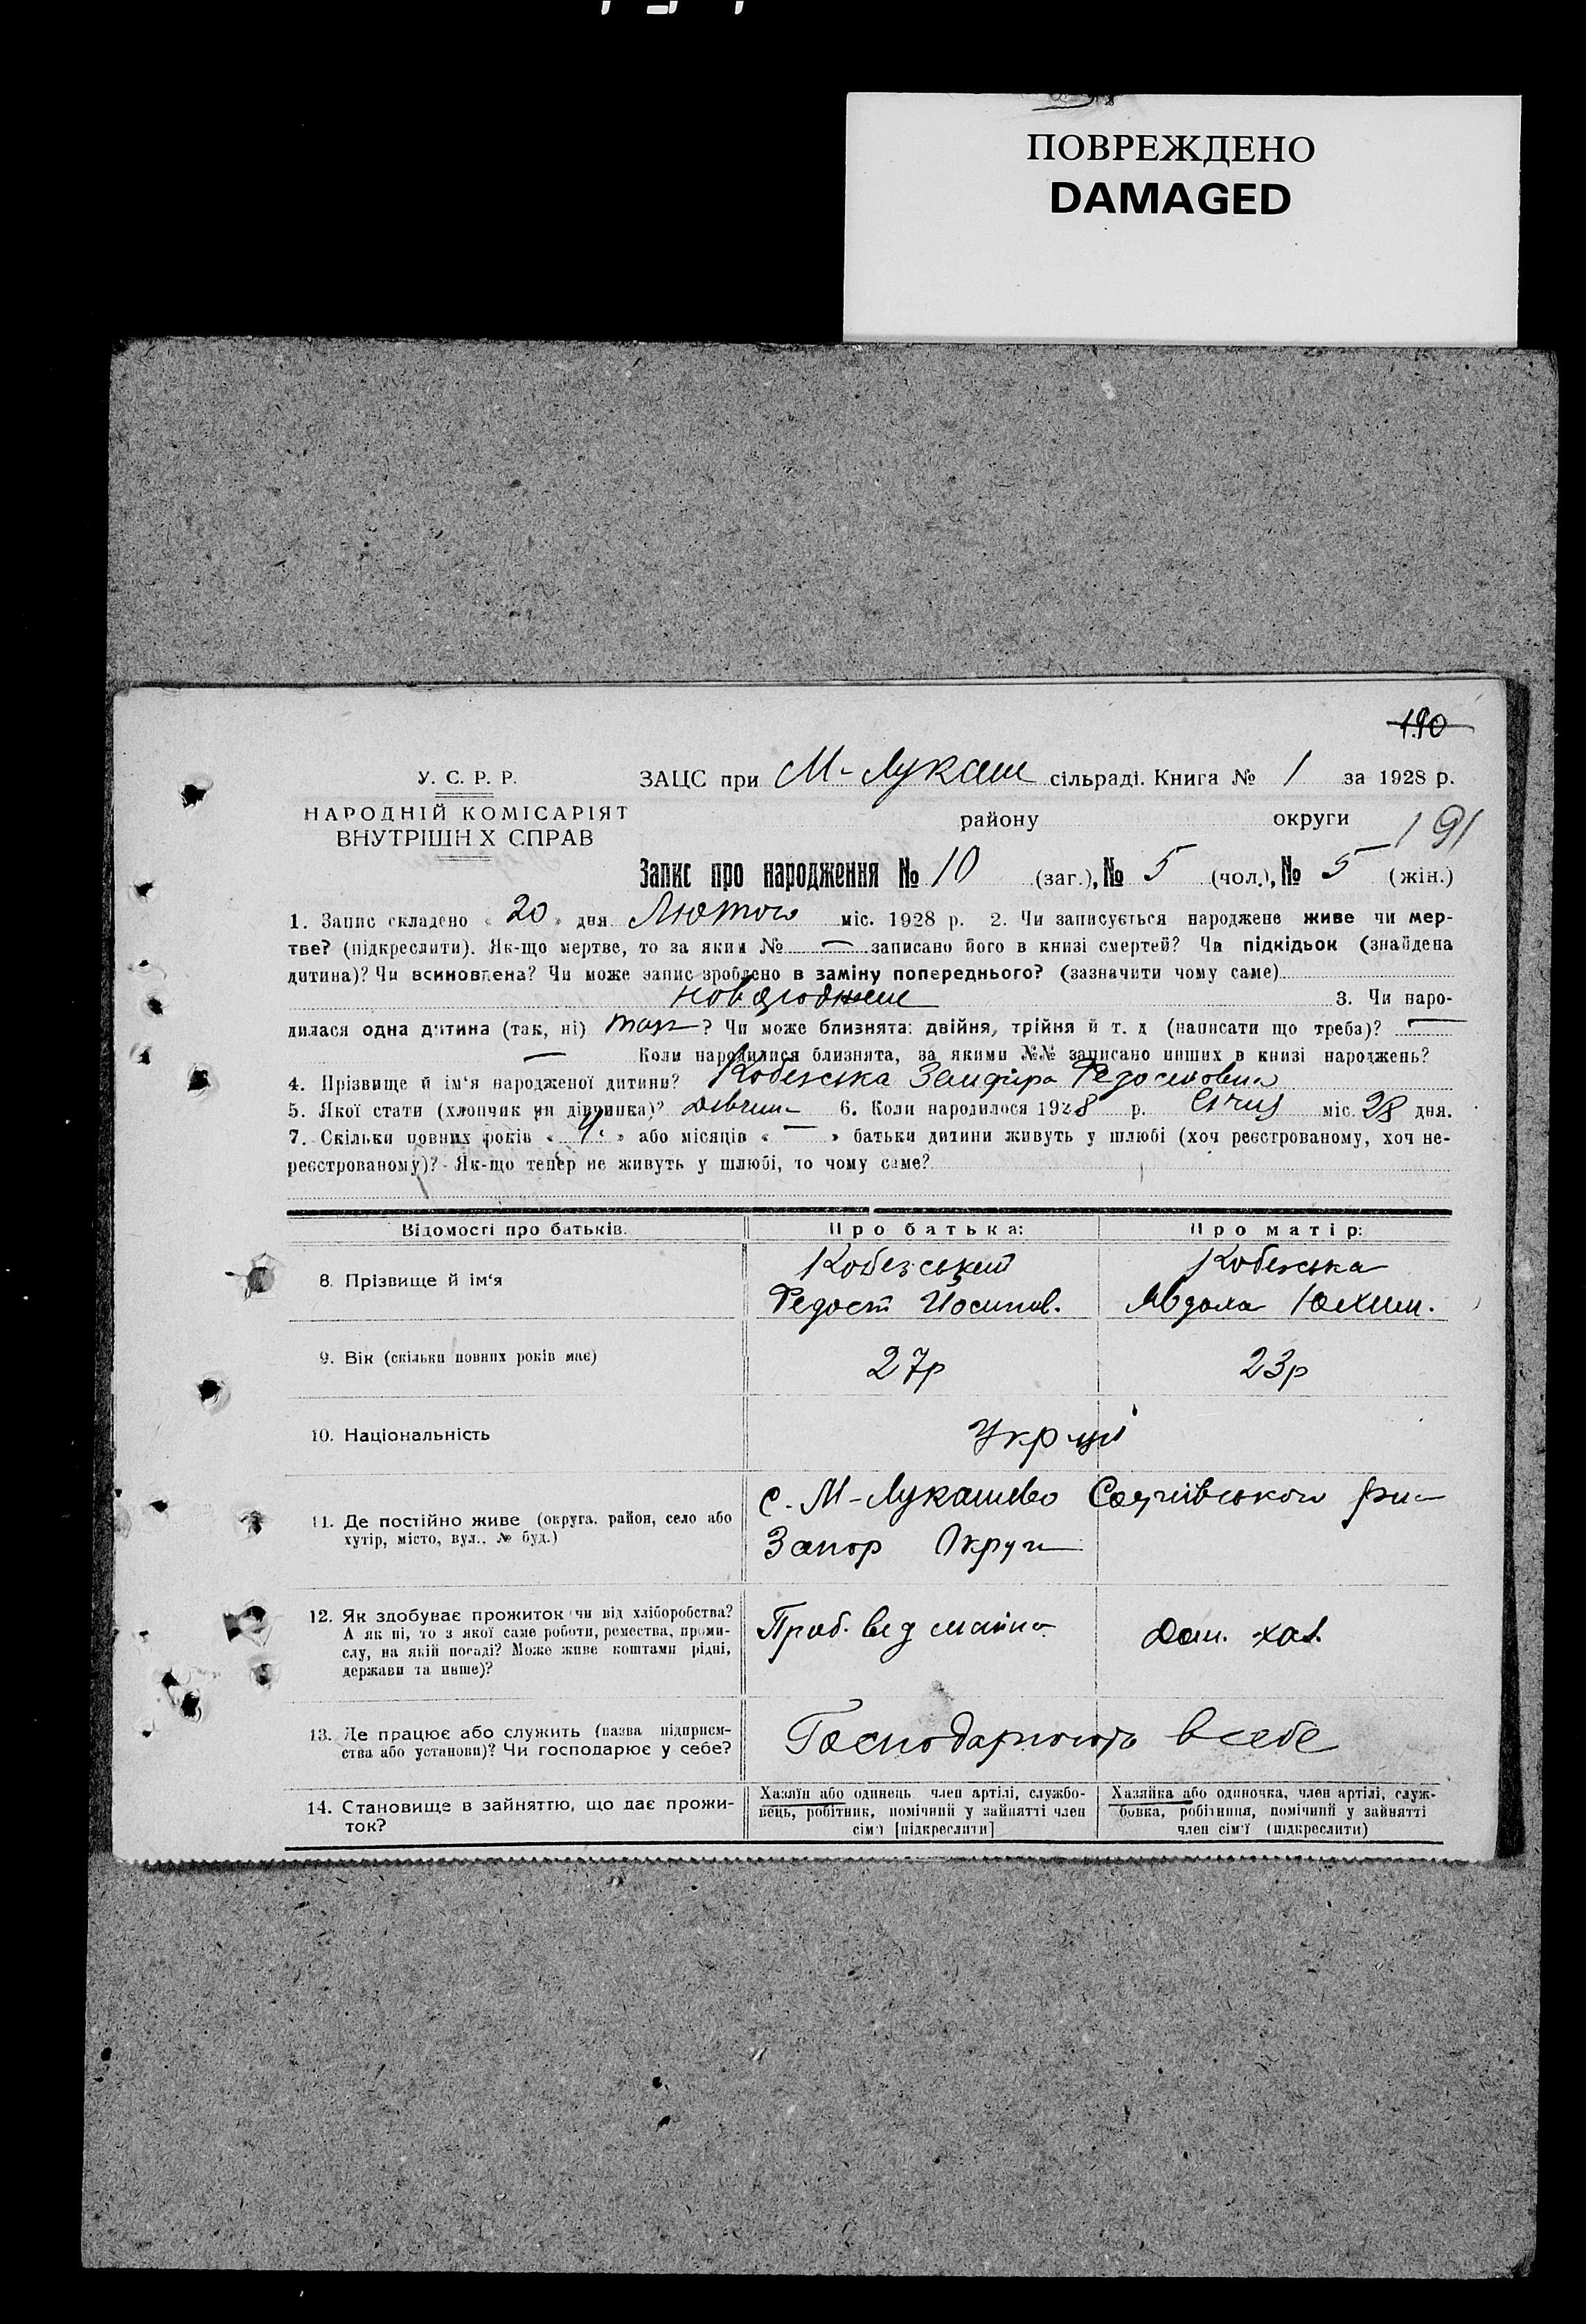 ПОВРЕЖДЕНО
DAMAGED
190
У. С. Р. Р.
НАРОДНІЙ КОМІСАРІЯТ
ВНУТРІШН Х СПРАВ
ЗАЦС при М-Лукаш сільраді. Книга № 1 за 1928 р.
району округи
191
Запис про народження № 10 (заг.), № 5 (чол.), № 5 (жін.)
1. Запис складено « 20 » дня Лютого міс. 1928 р. 2. Чи записується народжене живе чи мер-
тве? (підкреслити). Як-що мертве, то за яким № — записано його в книзі смертей? Чи підкідьок (знайдена
дитина)? Чи всиновлена? Чи може запис зроблено в заміну попереднього? (зазначити чому саме)
3. Чи наро-
дилася одна дитина (так, ні) так? Чи може близнята: двійня, трійня й т. д (написати що треба)? —
— Коли народилися близнята, за якими №№ записано инших в книзі народжень?
4. Прізвище й ім'я народженої дитини? Кобезська Земфира Федостовна
5. Якої стати (хлопчик чи дівчинка)? Дівчин 6. Коли народилося 1928 р. Січня міс. 28 дня.
7. Скільки повних років « 4 » або місяців « — » батьки дитини живуть у шлюбі (хоч реєстрованому, хоч не-
реєстрованому)? Як-що тепер не живуть у шлюбі, то чому саме?
Відомості про батьків. Про батька: Про матір:
8. Прізвище й ім'я
Кобезський Кобезська
Федост Йосипов. Явдоха Юхим.
9. Вік (скільки повних років має) 27р 23р
10. Національність Укр-ці
11. Де постійно живе (округа, район, село або
хутір, місто, вул., № буд.)
с. М-Лукашево
Запор Округи
12. Як здобуває прожиток чи від хліборобства?
А як ні, то з якої саме роботи, ремества, проми-
слу, на якій посаді? Може живе коштами рідні,
держави та инше)?
Дом. хаз.
13. Де працює або служить (назва підприєм-
ства або установи)? Чи господарює у себе?
Господарюють в себе
14. Становище в зайняттю, що дає прожи-
ток?
Хазяїн або одинець член артілі, службо-
вець, робітник, помічний у зайнятті член
сім'ї [підкреслити]
Хазяйка або одиночка, член артілі, служ-
бовка, робітниця, помічний у зайнятті
член сім'ї (підкреслити)